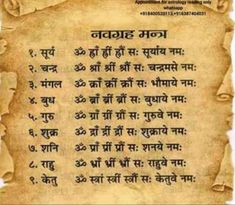 Appointment for astrology reading only
whatsapp
+918400520113,+916387404031
नवग्रह मन्त्र
१. सूर्य ॐ ह्राँ ह्रीं ह्रौं सः सूर्याय नमः
२. चन्द्र ॐ श्राँ श्रीं श्रौं सः चन्द्रमसे नमः
३. मंगल ॐ क्रां क्रीं क्रौं सः भौमाये नमः
४. बुध ॐ ब्रां ब्रीं ब्रौं सः बुधाये नमः
५. गुरु ॐ ग्रां ग्रीं ग्रौं सः गुरुवे नमः
६. शुक्र ॐ द्रां द्रीं द्रौं सः शुक्राये नमः
७. शनि ॐ प्रां प्रीं प्रौं सः शनये नमः
८. राहु ॐ भ्रां भ्रीं भ्रौं सः राहुवे नमः
९. केतु ॐ स्त्रां स्त्रीं स्त्रौं सः केतुवे नमः